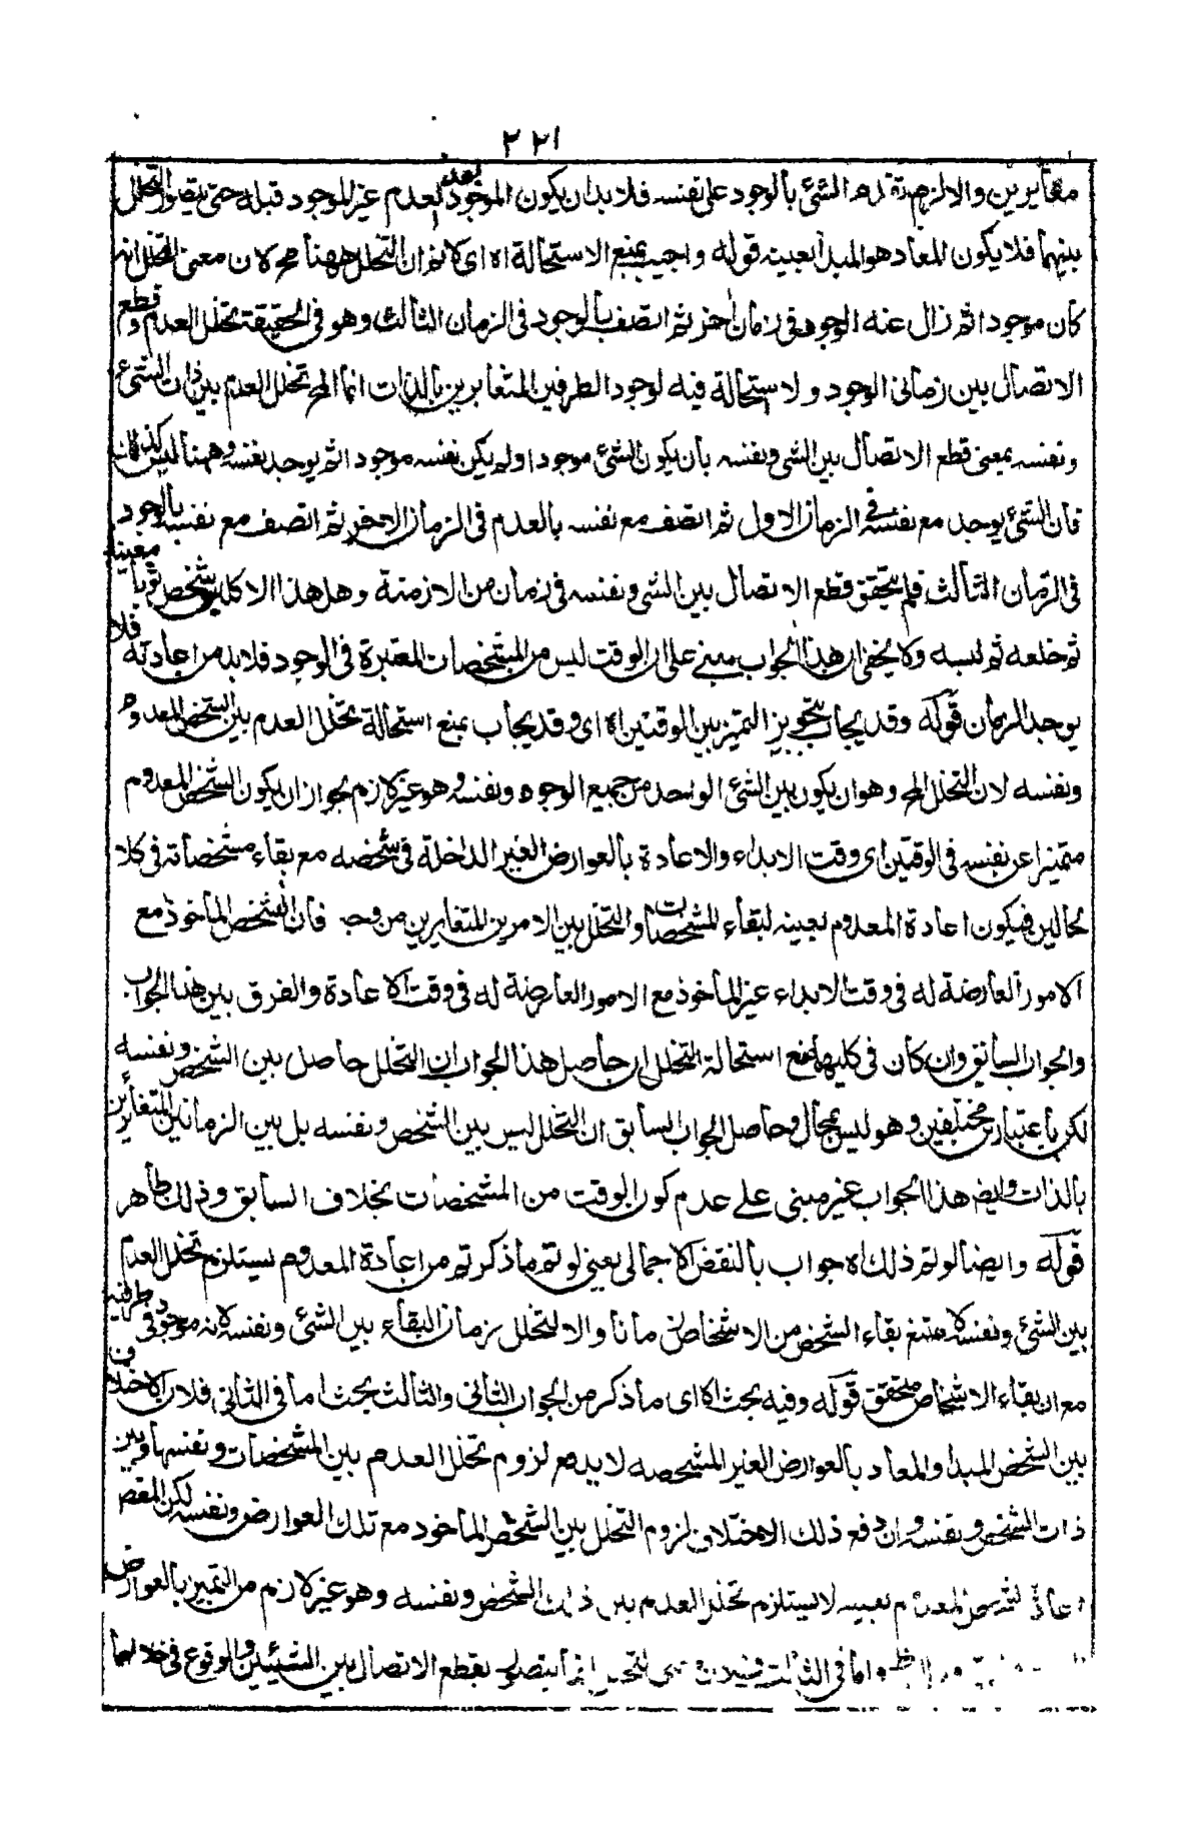 ٢٢١
مغايرين والا لزم تقدم الشئ بالوجود على نفسه فلا بد ان يكون الموجود بعد العدم غير الموجود قبله حتى يتصور التخلل
بينهما فلا يكون المعاد هو المبدأ بعينه قوله واجيب بمنع الاستحالة اه اى لا نم ان التخلل ههنا مح لان معنى التخلل انه
كان موجودا ثم زال عنه الوجود فى زمان اخر ثم اتصف بالوجود فى الزمان الثالث وهو فى الحقيقة تخلل العدم وقطع
الاتصال بين زمانى الوجود ولا استحالة فيه لوجود الطرفين المتغايرين بالذات انما المح تخلل العدم بين ذات الشئ
ونفسه بمعنى قطع الاتصال بين الشئ ونفسه بان يكون الشئ موجودا ولم يكن نفسه موجودا ثم يوجد نفسه وههنا ليس كذلك
فان الشئ يوجد مع نفسه فى الزمان الاول ثم اتصف مع نفسه بالعدم فى الزمان الاخر ثم اتصف مع نفسه بالوجود
فى الزمان الثالث فلم يتحقق قطع الاتصال بين الشئ ونفسه فى زمان من الازمنة وهل هذا الا كلبس شخص ثوبا معينا
ثم خلعه ثم لبسه ولا يخفى ان هذا الجواب مبنى على ان الوقت ليس من المشخصات المعتبرة فى الوجود فلا بد من اعادته فلا
يوجد الزمان قوله وقد يجاب بتجويز التميز بين الوقتين اه اى وقد يجاب بمنع استحالة تخلل العدم بين الشخص المعدوم
ونفسه لان التخلل المح وهو ان يكون بين الشئ الواحد من جميع الوجوه ونفسه وهو غير لازم لجواز ان يكون الشخص المعدوم
متميزا عن نفسه فى الوقتين اى وقت الابداء والاعادة بالعوارض الغير الداخلة فى شخصه مع بقاء مشخصاته فى كلا
لحالين فيكون اعادة المعدوم بعينه لبقاء المشخصات والتخلل بين الامرين المتغايرين من وجه فان الشخص الماخوذ مع
الامور العارضة له فى وقت الابداء غير الماخوذ مع الامور العارضة له فى وقت الاعادة والفرق بين هذا الجواب
والجواب السابق وان كان فى كليهما منع استحالة التخلل ان حاصل هذا الجواب ان التخلل حاصل بين الشخص ونفسه
لكن باعتبارين مختلفين وهو ليس بمحال وحاصل الجواب السابق ان التخلل ليس بين الشخص ونفسه بل بين الزمانين المتغايرين
بالذات وايضا هذا الجواب غير مبنى على عدم كون الوقت من المشخصات بخلاف السابق وذلك ظاهر
قوله وايضا لو تم ذلك اه جواب بالنقض الاجمالى يعنى لو تم ما ذكرتم من اعادة المعدوم يستلزم تخلل العدم
بين الشئ ونفسه لامتنع بقاء الشخص من الاشخاص زمانا والا لتخلل زمان البقاء بين الشئ ونفسه لانه موجود فى طرفيه
مع ان بقاء الاشخاص متحقق قوله وفيه بحث اه اى ما ذكر من الجواب الثانى والثالث بحث اما فى الثانى فلان الاختلاف
بين الشخص المبدأ والمعاد بالعوارض الغير المشخصه لا يدفع لزوم تخلل العدم بين المشخصات ونفسها وبين
ذات الشخص ونفسه وان دفع ذلك الاختلاف لزوم التخلل بين الشخص الماخوذ مع تلك العوارض ونفسه لكن المقصود
اعادة الشخص المعدوم بعينه لا يستلزم تخلل العدم بين ذات الشخص ونفسه وهو غير لازم من التميز بالعوارض
واما فى الثالث فلان التخلل انما يتصور بقطع الاتصال بين الشيئين والوقوع فى خلالهما